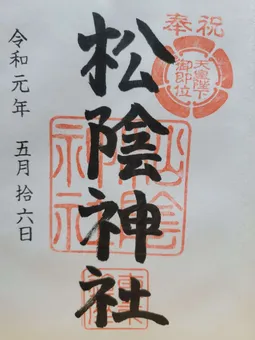 奉祝
天皇陛下
御即位
松陰神社
令和元年 五月拾六日
松陰
神社